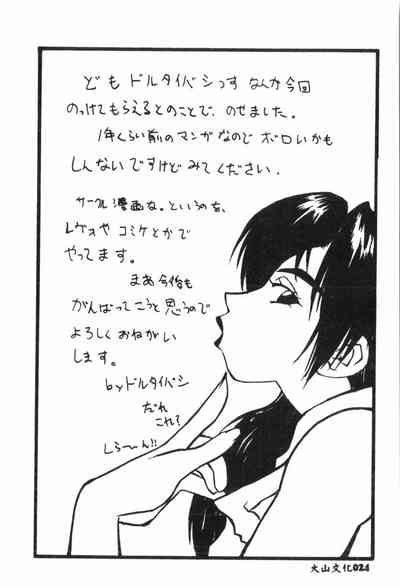 ども ドルタイバシっす なんか今回
のっけてもらえるとのことで、のせました。
1年くらい前のマンガなので ボロいかも
しんないですけど みてください.
サークル 漫画な。というのを、
レヴォや コミケとかで
やってます。
まあ 今後も
がんばってこうと思うので
よろしくおねがい
します。
by ドルタイバシ
だれ
これ?
しら〜ん!!
火山文化024